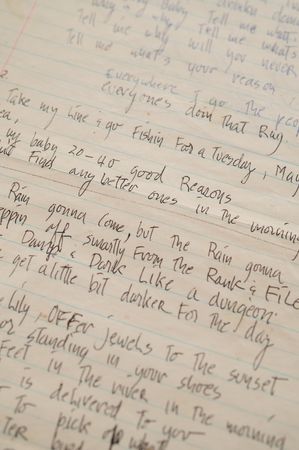 my Baby Tell me what
Tell me why Tell me what's
Tell me why will you never
Tell me what's your reason
Everywhere I go the peo
everyones doin that Rag.
2
Take my line & go Fishin For a Tuesday, May
my baby 20-40 good Reasons
Find any better ones in the morning
Rain gonna come, but the Rain gonna
off smartly From the Rank & File
Dark Like a dungeon
get a little bit darker For the day
Why OFFer jewels to the sunset
standing in your shoes
Feet in the river in the morning
is delivered to you
To pick what